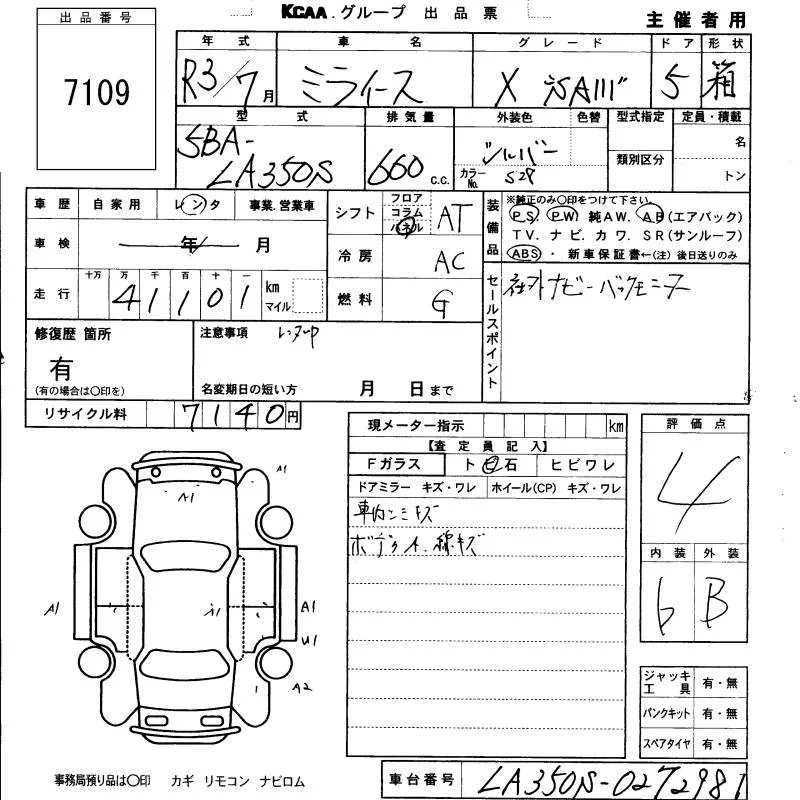 KCAA.グループ 出品票
主催者用
出品番号
7109
年式 車名 グレード ドア 形状
R3/7月 ミライース X SAIII 5 箱
型式 排気量 外装色 色替 型式指定 定員・積載
5BA-LA350S 660c.c. シルバー 名
カラーNo. S28 類別区分 トン
車歴 自家用 レンタ 事業.営業車
車検 年 月
走行 十万 万 千 百 十 一
41101 km マイル
シフト フロア コラム パネル AT
冷房 AC
燃料 G
装備品 ※純正のみ○印をつけて下さい。
PS PW 純AW. AB(エアバック)
TV. ナビ. カワ. SR(サンルーフ)
ABS ・ 新車保証書←(注) 後日送りのみ
セールスポイント
社外ナビ バックモニター
修復歴 箇所
有
(有の場合は○印を)
注意事項 レンタUP
名変期日の短い方 月 日まで
リサイクル料 7140円
現メーター指示 km
【査定員記入】
Fガラス ト 石 ヒビワレ
ドアミラー キズ・ワレ ホイール(CP) キズ・ワレ
車内シミキズ
ボディ 小、線キズ
評価点
4
内装 外装
6 B
A1
A1
A1
A1
A1
U1
A2
ジャッキ工具 有・無
パンクキット 有・無
スペアタイヤ 有・無
事務局預り品は○印 カギ リモコン ナビロム
車台番号 LA350S-0272981